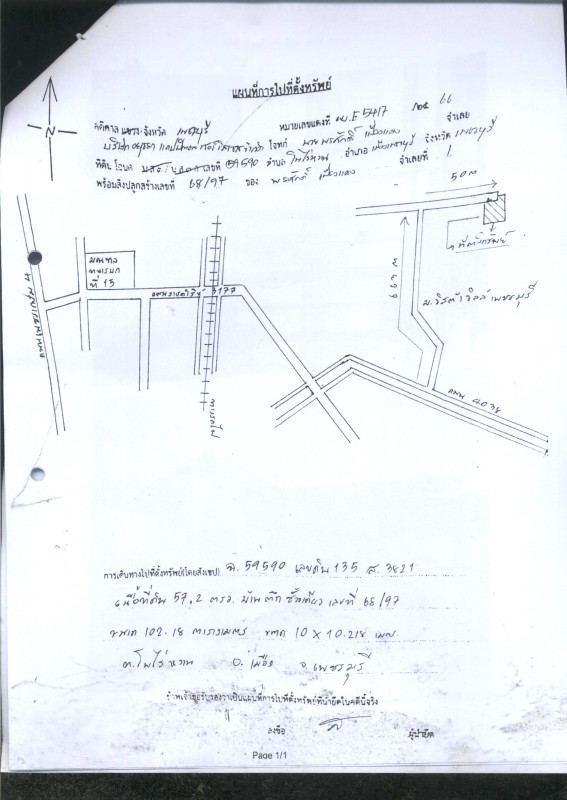 แผนที่การไปที่ตั้งทรัพย์
คดีศาล แขวง จังหวัด เพชรบุรี หมายเลขแดงที่ ผบ.E1541/2566
บริษัท โจทก์ นาย พรศักดิ์ จำเลย
ที่ดิน โฉนด เลขที่ 59590 ตำบล โพไร่หวาน อำเภอ เมืองเพชรบุรี จังหวัด เพชรบุรี
พร้อมสิ่งปลูกสร้างเลขที่ 68/97 ของ พรศักดิ์ จำเลยที่ 1
N
50 m
ที่ตั้งทรัพย์
มณฑล
ทหารบก
ที่ 15
3177
667 m
ม.วิสต้าวิลล์เพชรบุรี
ถนนเพชรเกษม 4
ทางรถไฟ
ถนน 4038
การเดินทางไปที่ตั้งทรัพย์(โดยสังเขป) ฉ. 59590 เลขดิน 135 ส. 3821
เนื้อที่ดิน 57.2 ตรว. บ้านตึกชั้นเดียว เลขที่ 68/97
ขนาด 102.18 ตารางเมตร ขนาด 10 X 10.218 เมตร
ต.โพไร่หวาน อ.เมือง จ.เพชรบุรี
ข้าพเจ้าขอรับรองว่าเป็นแผนที่การไปที่ตั้งทรัพย์ที่นำยึดในคดีนี้จริง
ลงชื่อ ผู้นำยึด
Page 1/1